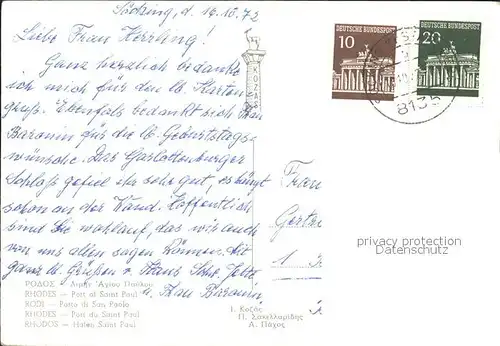 Söcking, d. 16.10.72
Liebe Frau Herrling!
Ganz herzlich bedanke
ich mich für den lb. Karten
gruß. Ebenfals bedankt sich Frau
Baronin für die lb. Geburtstags-
wünsche. Das Garlottenburger
Schloß gefiel ihr sehr gut, es hängt
schon an der Wand. Hoffentlich
sind Sie wohlauf, das wir auch
von uns allen sagen können. Mit
ganz lb. Grüßen v. Hans
u. Frau Baronin
ΡΟΔΟΣ — Λιμήν Ἁγίου Παύλου
RHODES — Port of Saint Paul
RODI — Porto di San Paolo
RHODES — Port du Saint Paul
RHODOS — Hafen Saint Paul
Ι. Κοζᾶς
Π. Σακελλαρίδης
Α. Πάχος
DEUTSCHE BUNDESPOST
10
DEUTSCHE BUNDESPOST
20
8135
Frau
Gertr
1
privacy protection
Datenschutz